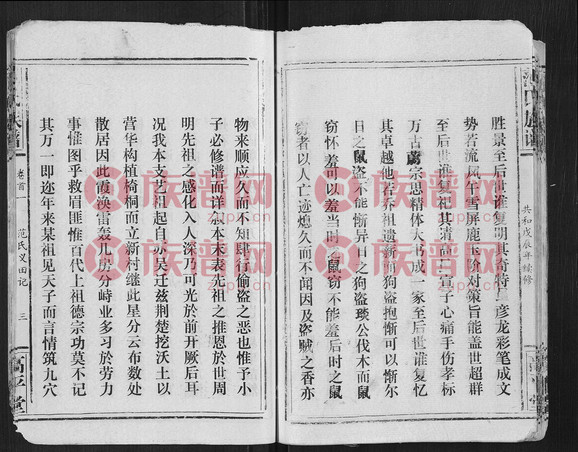 范氏族譜
共和戊辰年续修
高平堂
胜景至后世谁复明其奇特 彦龙彩笔成文
势若流风午雪屏鹿玉阶对策旨能盖世超群
至后世谁复祖其清高 宣子心痛手伤孝标
万古 宗思精体大书成一家至后世谁复忆
其卓越他若乔祖遗薪而狗盗抱惭可以惭尔
日之鼠盗不能惭异日之狗盗琰公伐木而鼠
窃怀羞可以羞当时之鼠窃不能羞后时之鼠
窃者以人亡迹熄久而不闻因及盗贼之香亦
物来顺应久而不知肆行偷盗之恶也惟予小
子必修谱而详叙本末表先祖之推恩於世周
明先祖之感化入人深乃可光於前开厥后耳
况我本支艺祖起自亦吴迁兹荆楚挖沃土以
营华构植椅桐而立新村继此星分云布数处
散居因此霞涣雷轰几房分峙业多习於劳力
事惟图乎救眉匪惟百代上祖德宗功莫不记
其万一即迩年来某祖见天子而言情筑九穴
氏族譜
卷首一
范氏义田记
三
高平堂
族谱网